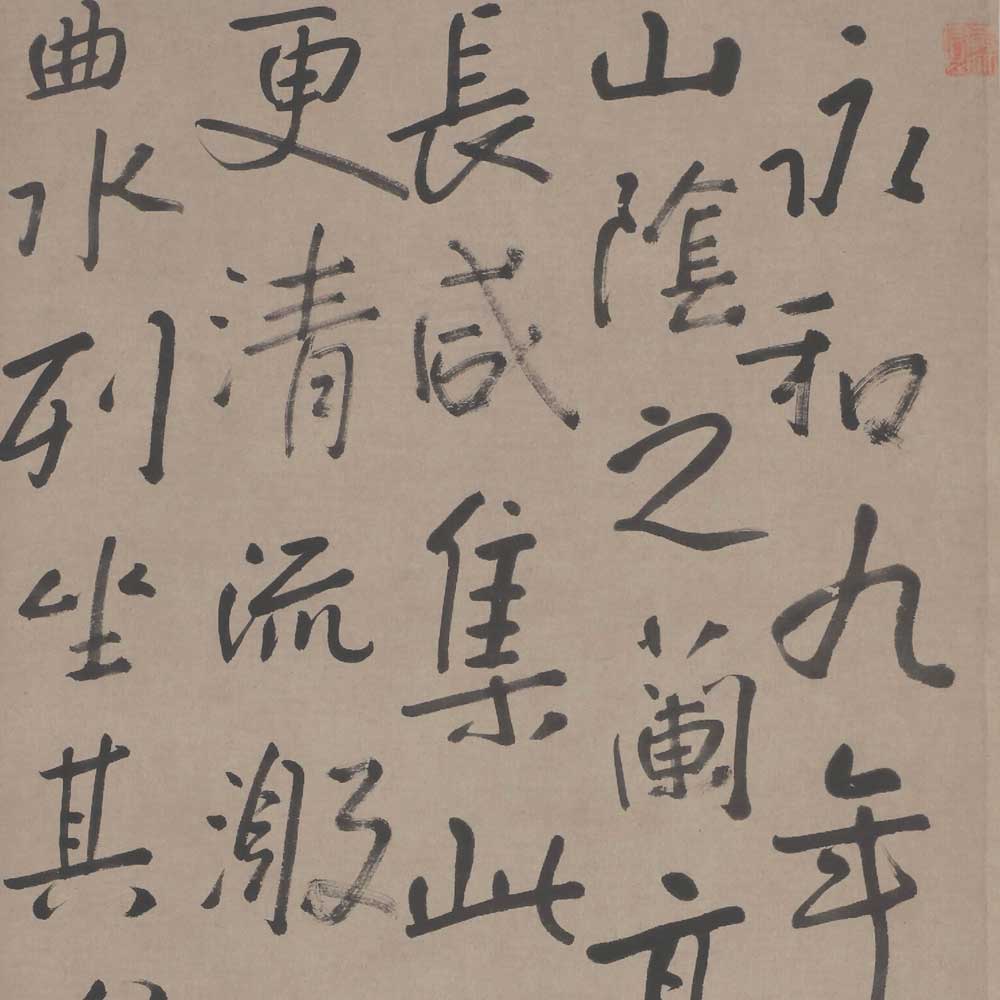 永和九年
山陰之蘭亭
長咸集此
更清流激
曲水列坐其